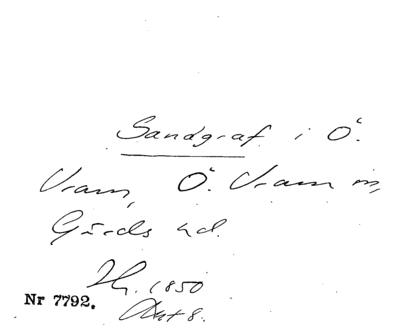 Sandgraf i Ö.
Vram, Ö. Vram sn,
Gärds hd.
Jh. 1850
Nr 7792.